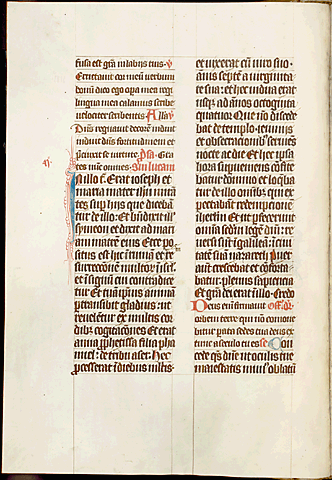 fusa est gra in labijs tuis. v
Eructauit cor meu verbum
bonu dico ego opa mea regi
lingua mea calamus scribe
velociter scribentis Alla v
Dns regnauit decore induit
induit dns fortitudinem et
precinxit se virtute. Pa. Gra
tes nuc omnes. Sm lucam
In illo t. Erat ioseph et
maria mater ihu mira
tes sup hijs que diceba
tur de illo. Et bndixit ill
symeon et dixit ad mari
am matre eius Ecce po
situs est hic i ruina et re
surrectione multor i isrl.
et i signu cui contradice
tur Et tua ipsius anima
ptransibit gladius. ut
reueletur ex multis cor
dibz cogitacones Et erat
anna prophetissa filia pha
nuel. de tribu aser. Hec
processerat i diebus multis.
et vixerat cu viro suo
anis septe a virginita
te sua. et hec vidua erat
usqz ad anos octoginta
quatuor. Que no discede
bat de templo. ieiunijs
et obsecracionibz seruies
nocte ac die Et hec ipsa
hora superueniens confite
batur domino et loqba
tur de illo omibz qui ex
pectabant redempcionem
isrl. Et ut pfecerunt
omia scdm lege dni. re
uersi sut i galilea. i ciui
tate sua nazareth Puer
aut crescebat et conforta
batur. plenus sapiencia
Et gra dei erat i illo. Credo
Deus eni firmauit offor.
orbem terre qui no comoue
bitur parata sedes tua deus ex
tunc a seculo tu es se Con
cede qs dne ut oculis tue
maiestatis munus oblatu